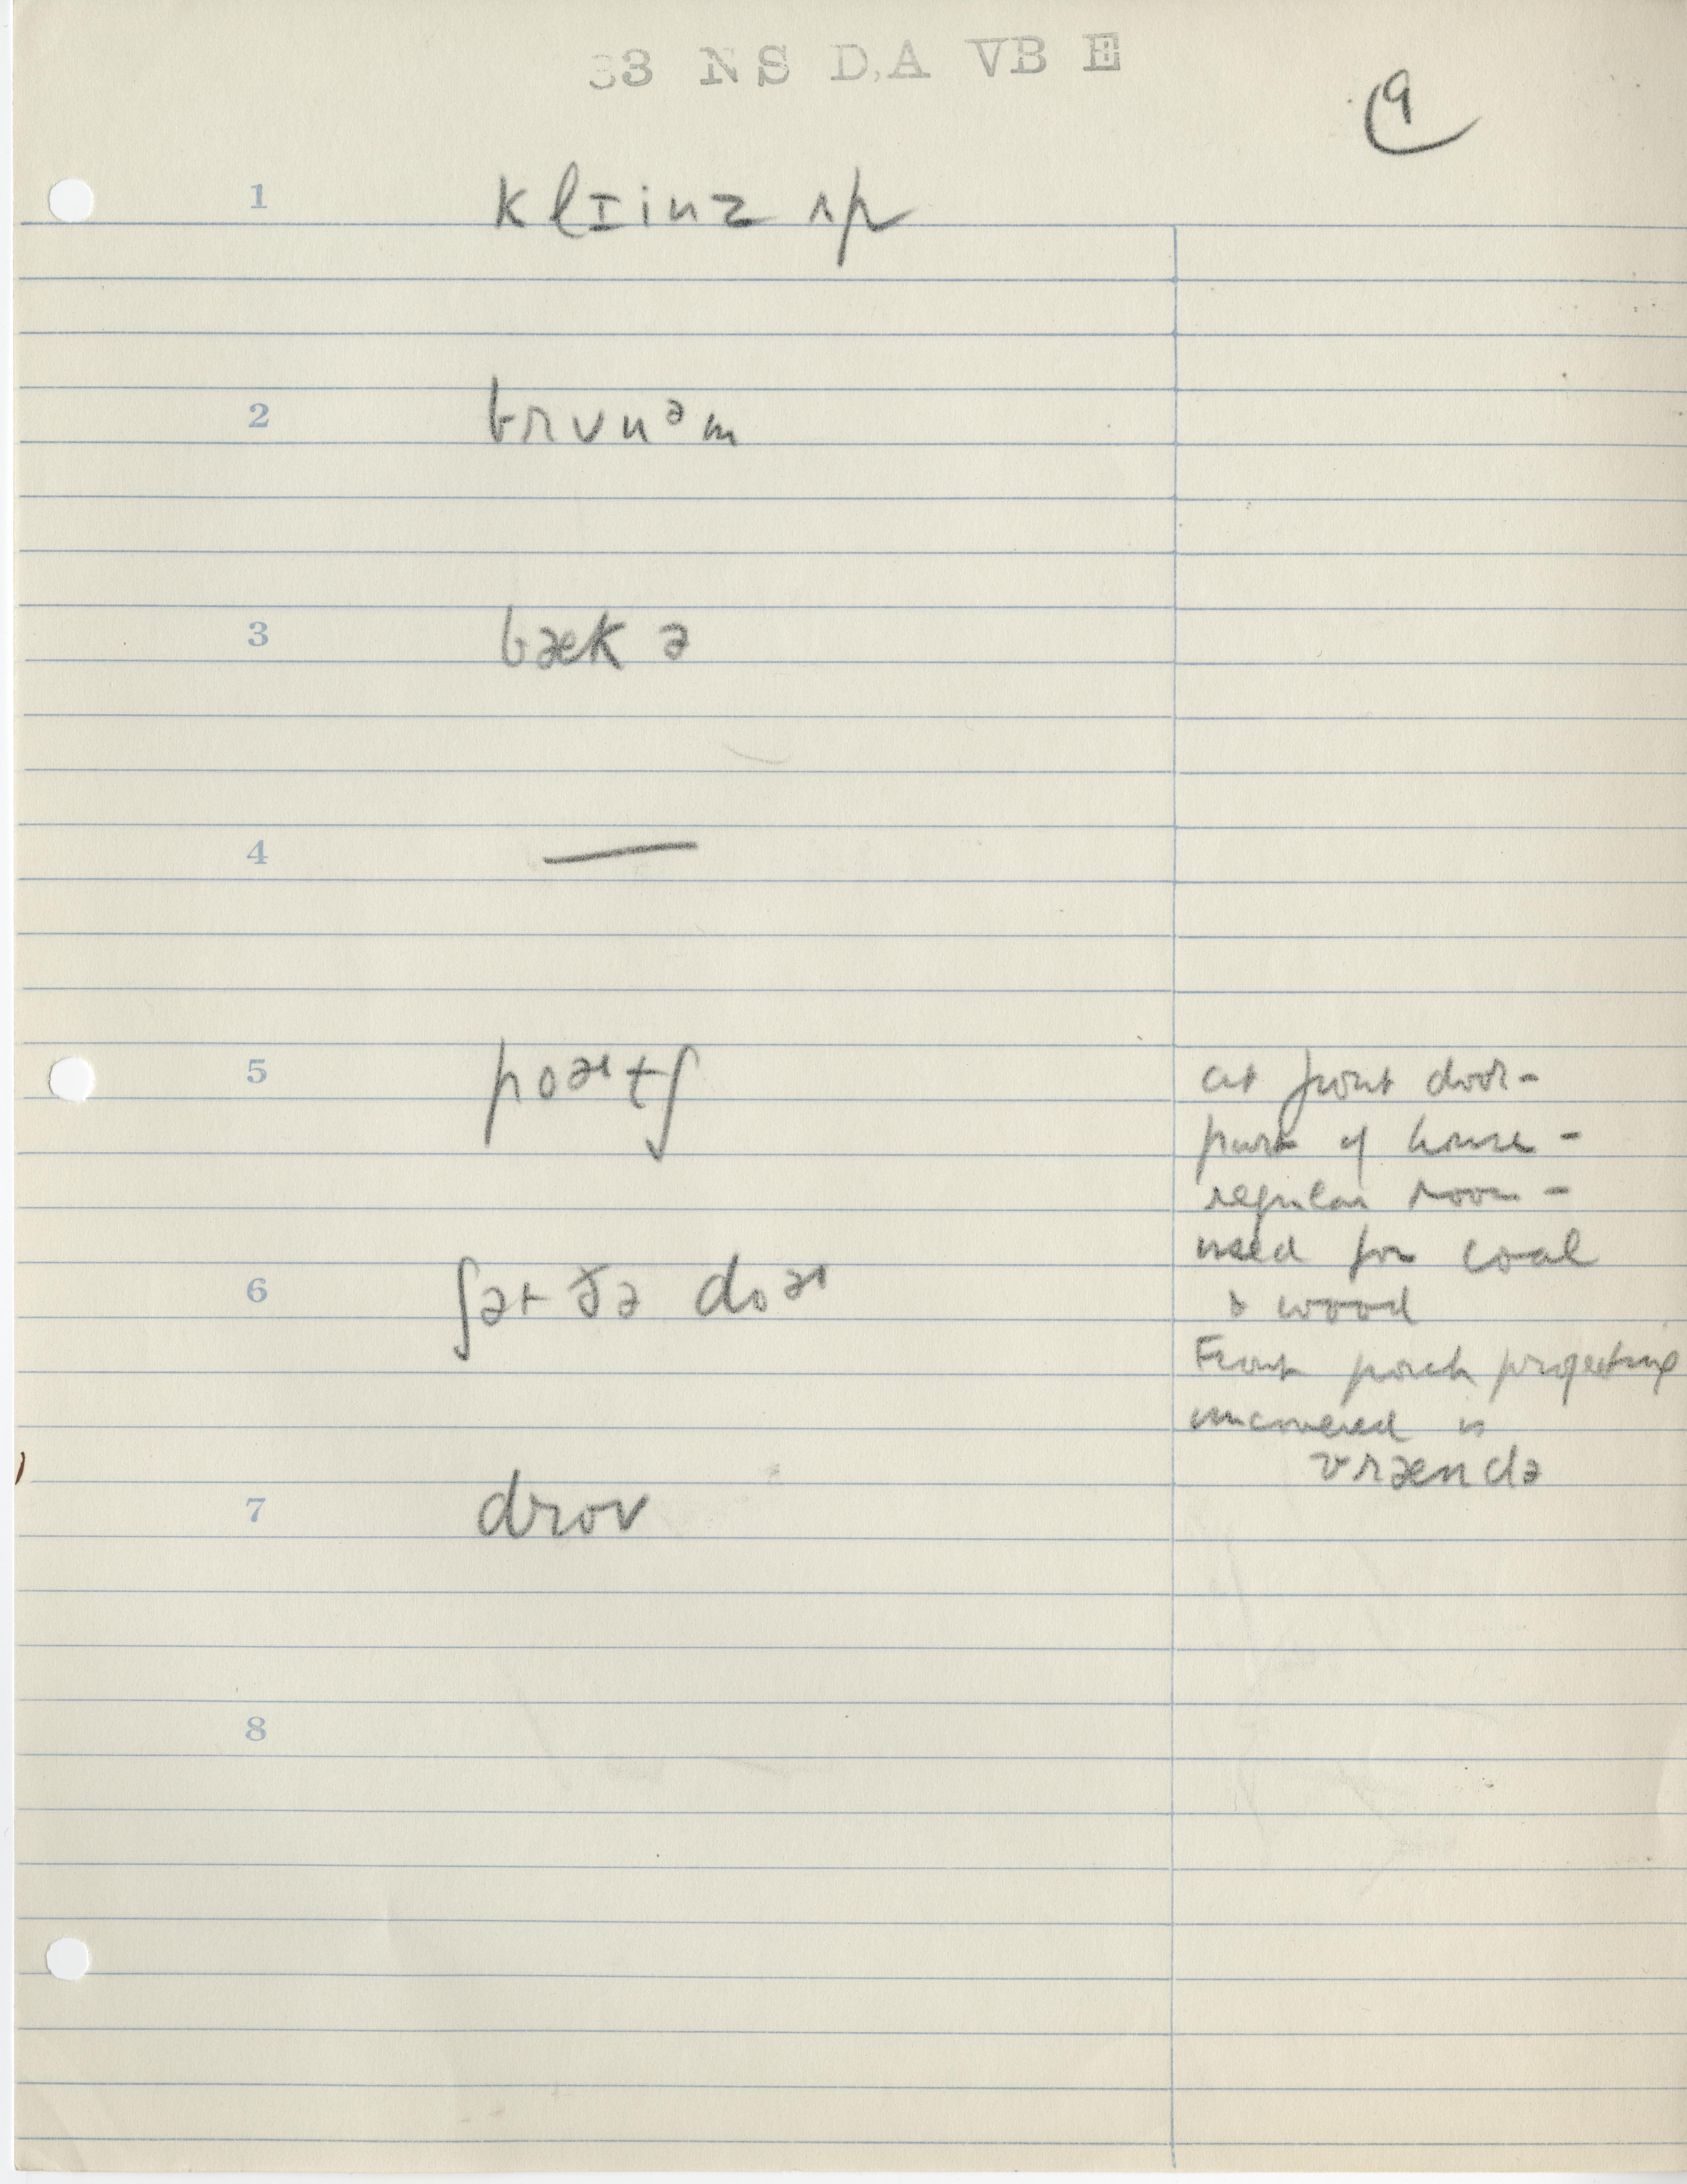 33 NS D,A VB E
9
1 klɪinz ʌp
2 brun ᵊm
3 bæk ə
4 —
5 poɚtʃ
at front door -
part of house -
regular room -
used for coal
& wood
6 ʃət ðə doɚ
Front porch projecting
uncovered is
vrændə
7 drov
8